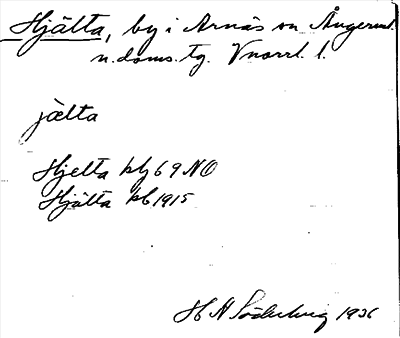 Hjälta, by i Arnäs sn Ångerml.
n. doms. tg. Vnorrl. l.
jälta
Hjelta kbg 69 NO
Hjälta kb 1915
H A Söderberg 1936